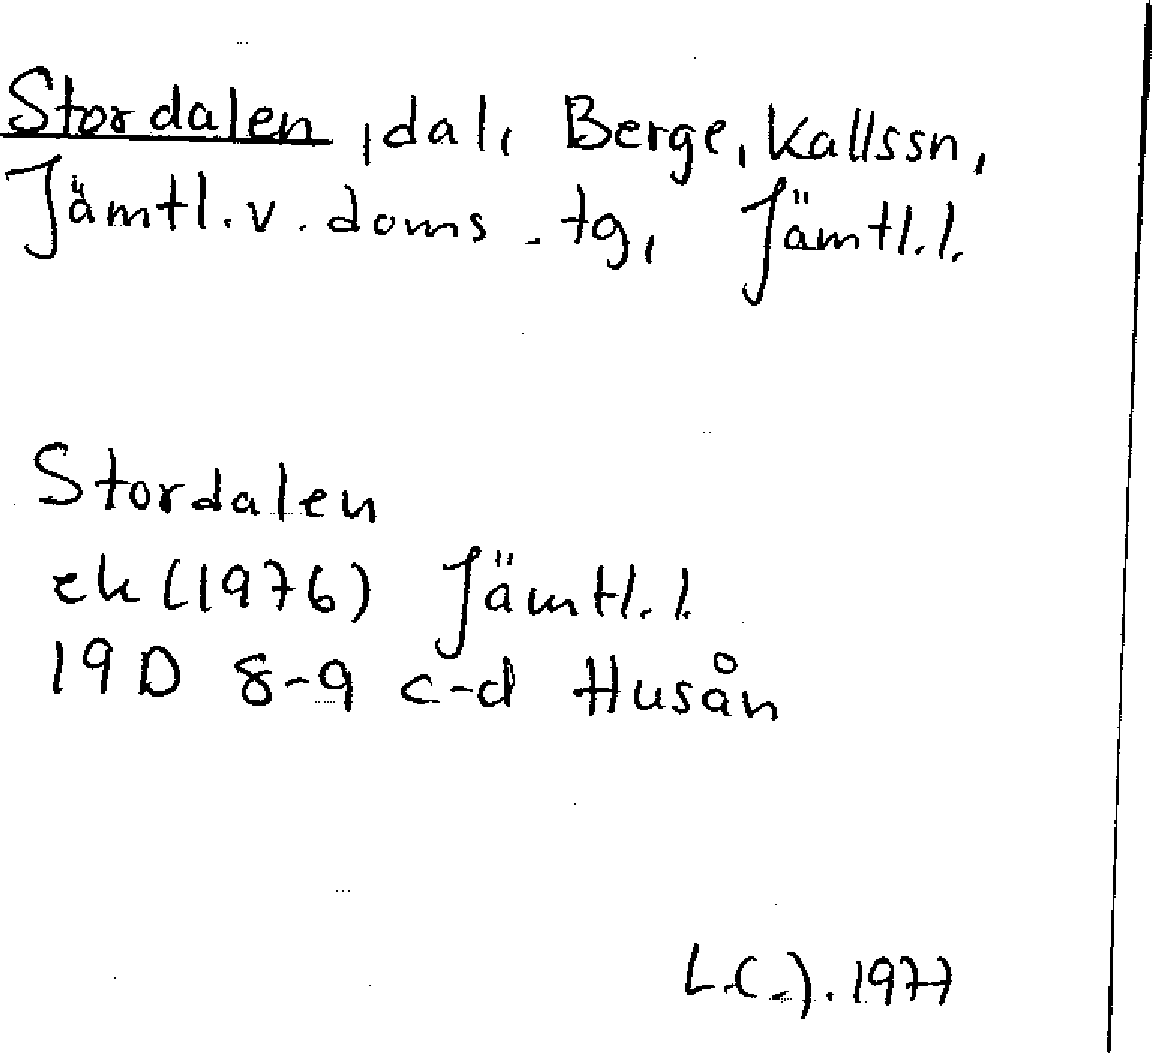 Stordalen, dal, Berge, Kallssn,
Jämtl.v.doms.tg, Jämtl.l.
Stordalen
ek (1976) Jämtl.l.
19D 8-9 c-d Husån
1977